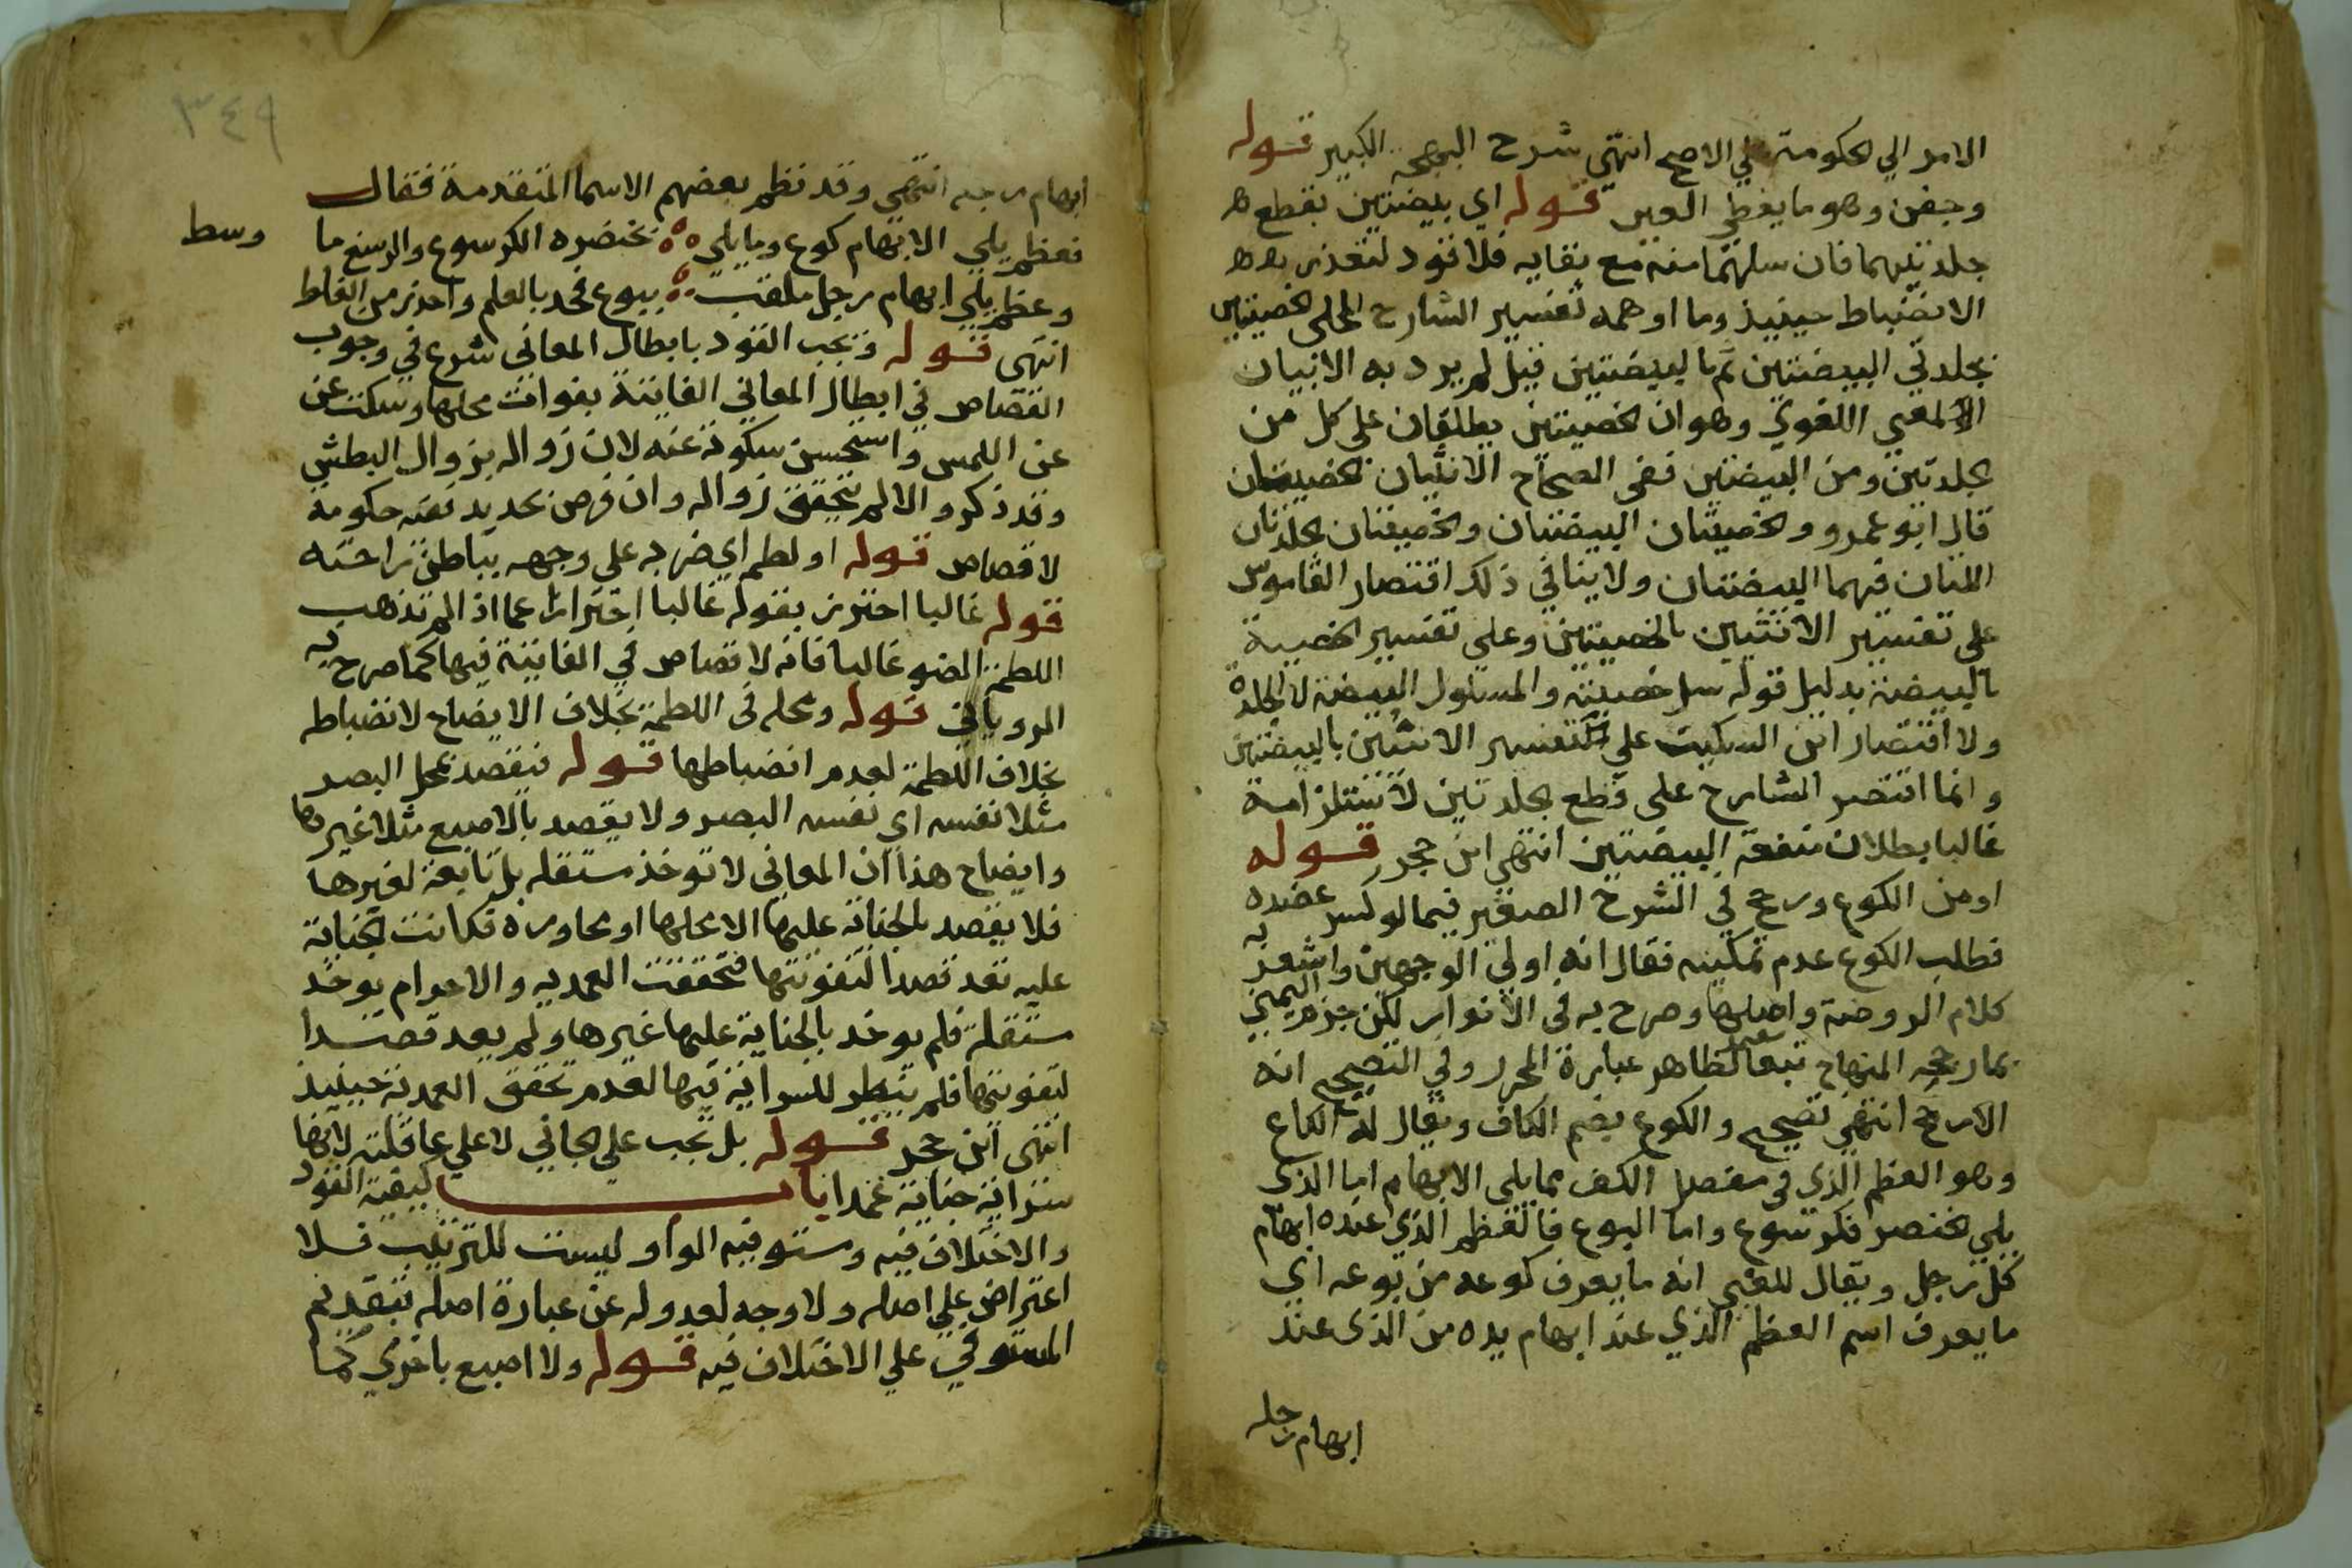 الامر الي الحكومة علي الاصح انتهى شرح البهجة الكبير قوله
وجفن وهو ما يغطي العين قوله اي بيضتين بقطع
جلدتيهما فان سلهما منه مع بقايه فلا قود لتعذر
الانضباط حينيذ وما اوهمه تفسير الشارح المحلي الخصيتين
بجلدتي البيضتين ثم بالبيضتين قيل لم يرد به الا بيان
المعني اللغوي وهو ان الخصيتين يطلقان على كل من
الجلدتين ومن البيضتين ففى الصحاح الانثيان الخصيتان
قال ابو عمرو والخصيتان البيضتان والخصيتان الجلدتان
اللتان فيهما البيضتان ولا ينافي ذلك اقتصار القاموس
على تفسير الانثيين بالخصيتين وعلى تفسير الخصية
بالبيضة بدليل قوله سل خصيته والمسلول البيضة لا الجلدة
ولا اقتصار ابن السكيت علي تفسير الانثيين بالبيضتين
وانما اقتصر الشارح على قطع الجلدتين لاستلزامه
غالبا بطلان منفعة البيضتين انتهى ابن حجر قوله
او من الكوع ورجح في الشرح الصغير فيما لو كسر عضده
فطلب الكوع عدم تمكينه فقال انه اولي الوجهين واشعر به
كلام الروضة واصلها وصرح به في الانوار لكن جزم اليمني
بما رجحه المنهاج تبعا لظاهر عبارة المحرر وفي التصحيح انه
الارجح انتهى تصحيح والكوع بضم الكاف ويقال له الكاع
وهو العظم الذي في مفصل الكف مما يلي الابهام اما الذي
يلي الخنصر فكرسوع واما البوع فالعظم الذي عنده ابهام
كل رجل ويقال للغبي انه ما يعرف كوعه من بوعه اي
ما يعرف اسم العظم الذي عند ابهام يده من الذى عند
ابهام رجله
٣٤٩
ابهام رجله انتهى وقد نظم بعضهم الاسما المتقدمة فقال
فعظم يلي الابهام كوع وما يلي لخنصره الكرسوع والرسغ ما وسط
وعظم يلي ابهام رجل ملقب ببوع فخذ بالعلم واحذر من الغلط
انتهى قوله وتجب القود بابطال المعاني شرع في وجوب
القصاص في ابطال المعاني الفايتة بفوات محلها وسكت عن
عن اللمس واستحسن سكوته عنه لان زواله بزوال البطش
وقد ذكر والا لم يتحقق زواله وان فرض تخدير ففيه حكومة
لا قصاص قوله او لطم اي ضربه على وجهه بباطن راحته
قوله غالبا احترز بقوله غالبا احترازا عما اذا لم تذهب
اللطمة الضو غالبا فانه لا قصاص في الفايتة فيها كما صرح به
الروياني قوله ومحله في اللطمة بخلاف الايضاح لانضباطه
بخلاف اللطمة لعدم انضباطها قوله فيقصد بمحل البصر
مثلا نفسه اي نفس البصر ولا يقصد بالاصبع مثلا غيرها
وايضاح هذا ان المعاني لا توخذ مستقلة بل تابعة لغيرها
فلا يقصد بالجناية عليها الا محلها او مجاوره فكانت الجناية
عليه تعد قصدا لتفويتها فتحققت العمديه والاجرام توخذ
مستقلة فلم يوخذ بالجناية عليها غيرها ولم يعد قصدا
لتفويتها فلم ينظر للسراية فيها لعدم تحقق العمدية حينيذ
انتهى ابن حجر قوله بل تجب علي الجاني لا علي عاقلته لانها
سراية جناية عمدا باب كيفية القود
والاختلاف فيه ومستوفيه الواو ليست للترتيب فلا
اعتراض علي اصله ولا وجه لعدوله عن عبارة اصله بتقديم
المستوفي علي الاختلاف فيه قوله ولا اصبع باخري كما